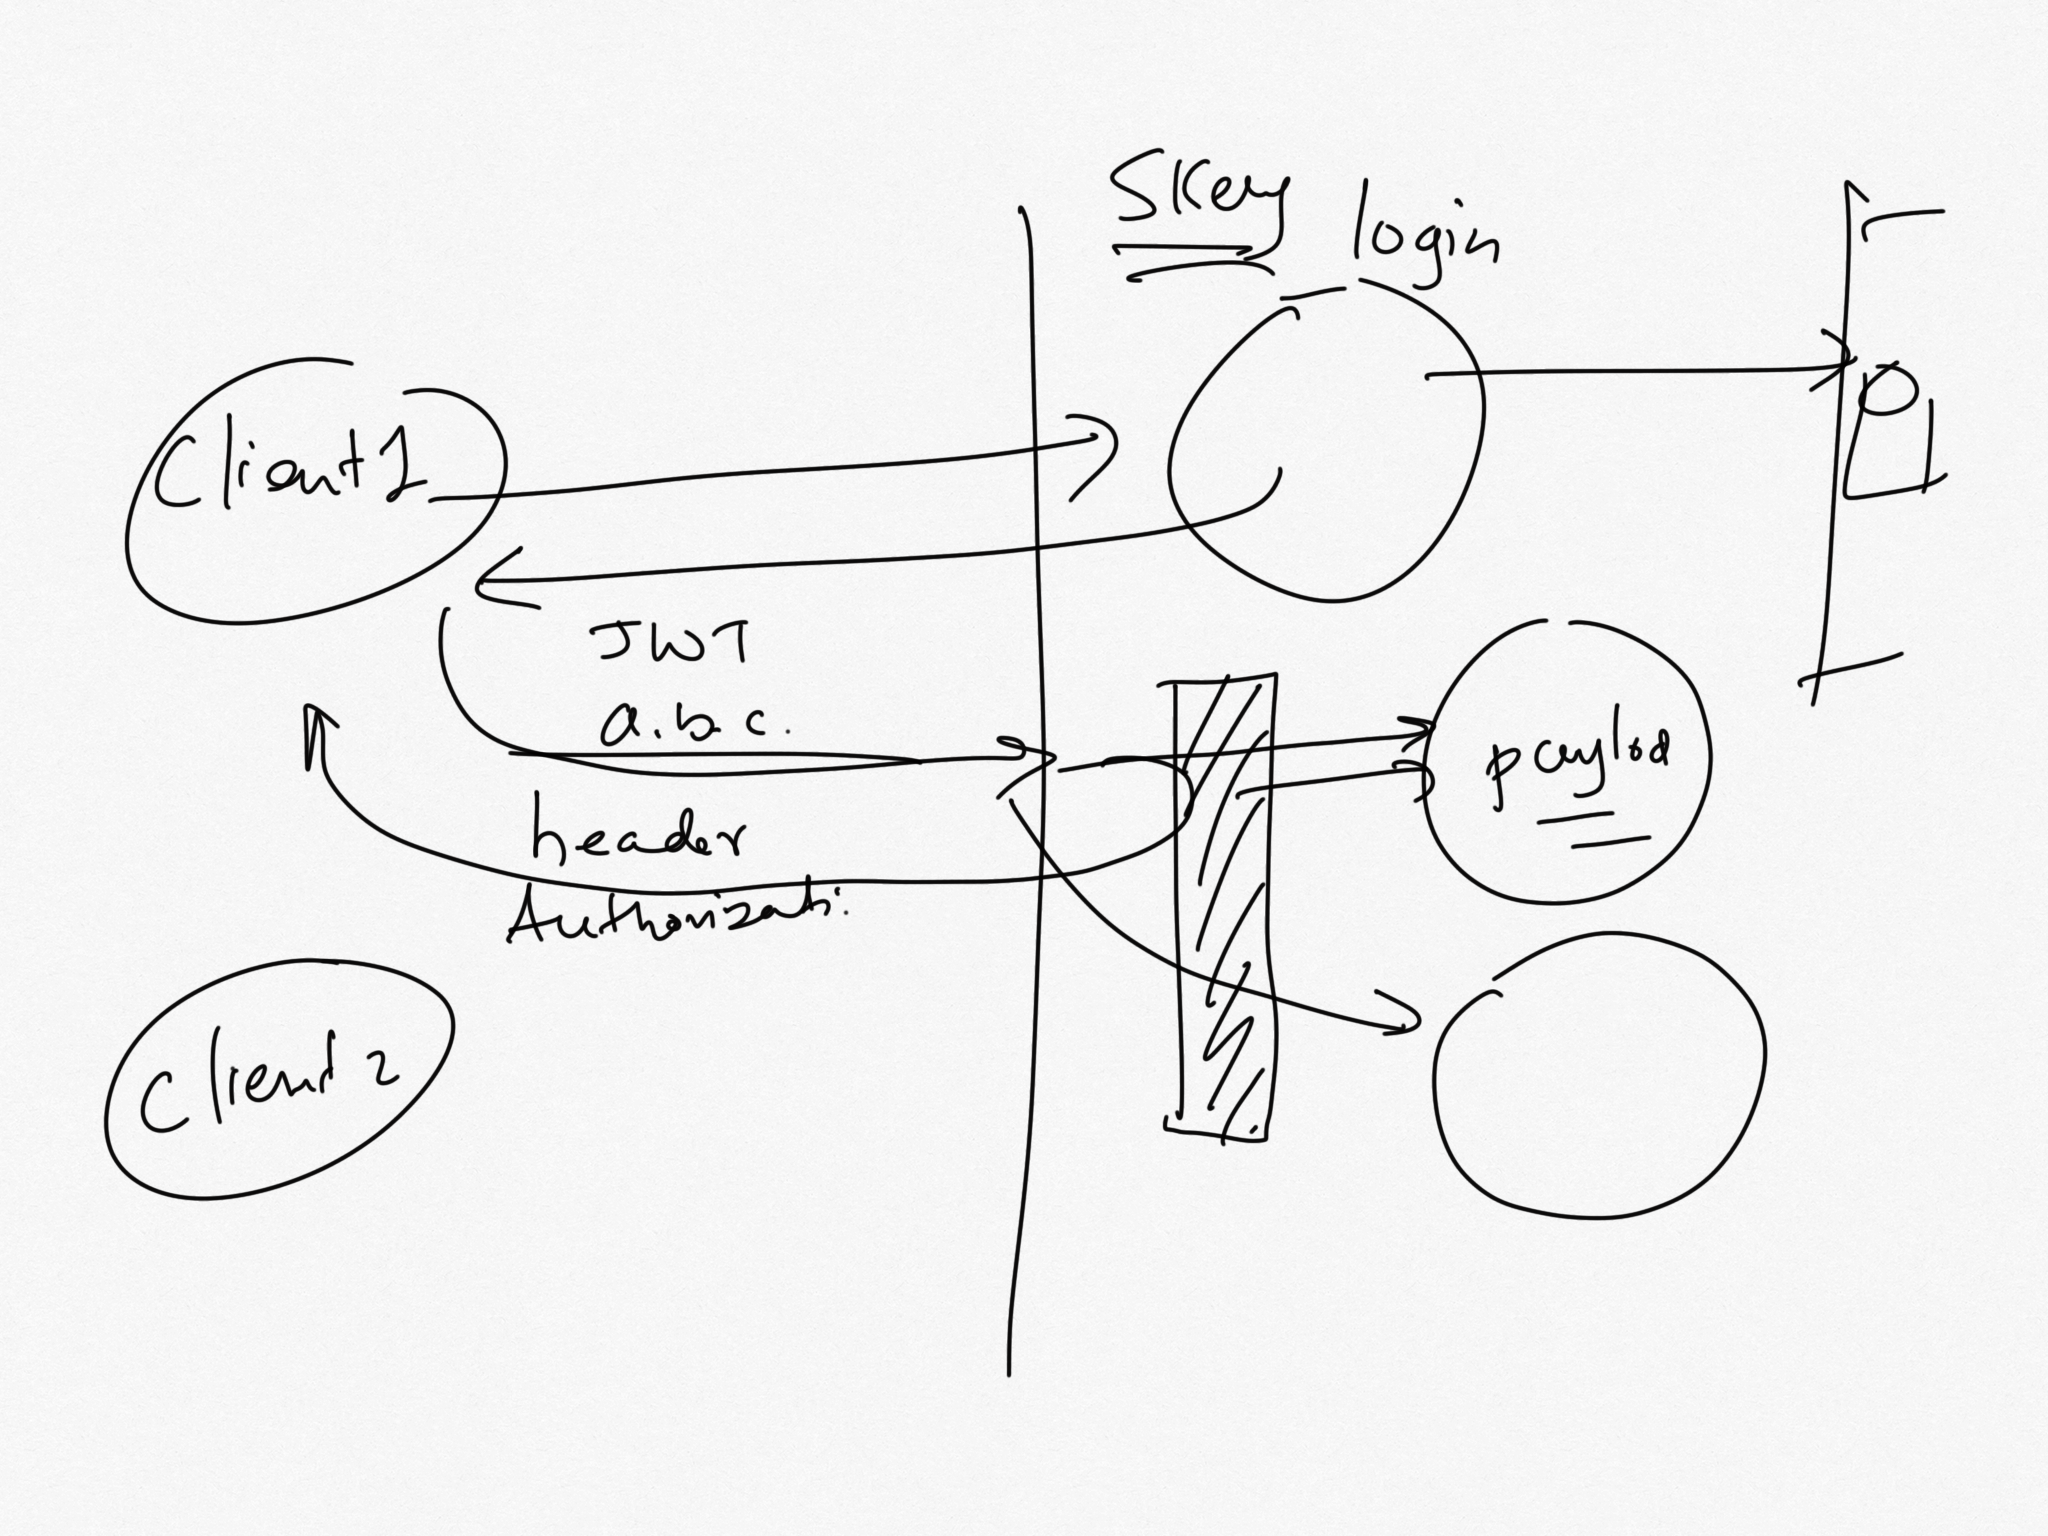 SKey
login
Client 1
JWT
a.b.c.
header
Authorizati.
paylod
Client 2